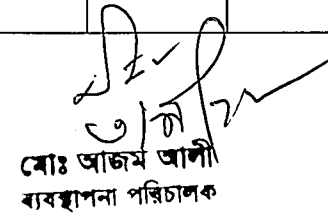 মোঃ আজম আলী
ব্যবস্থাপনা পরিচালক